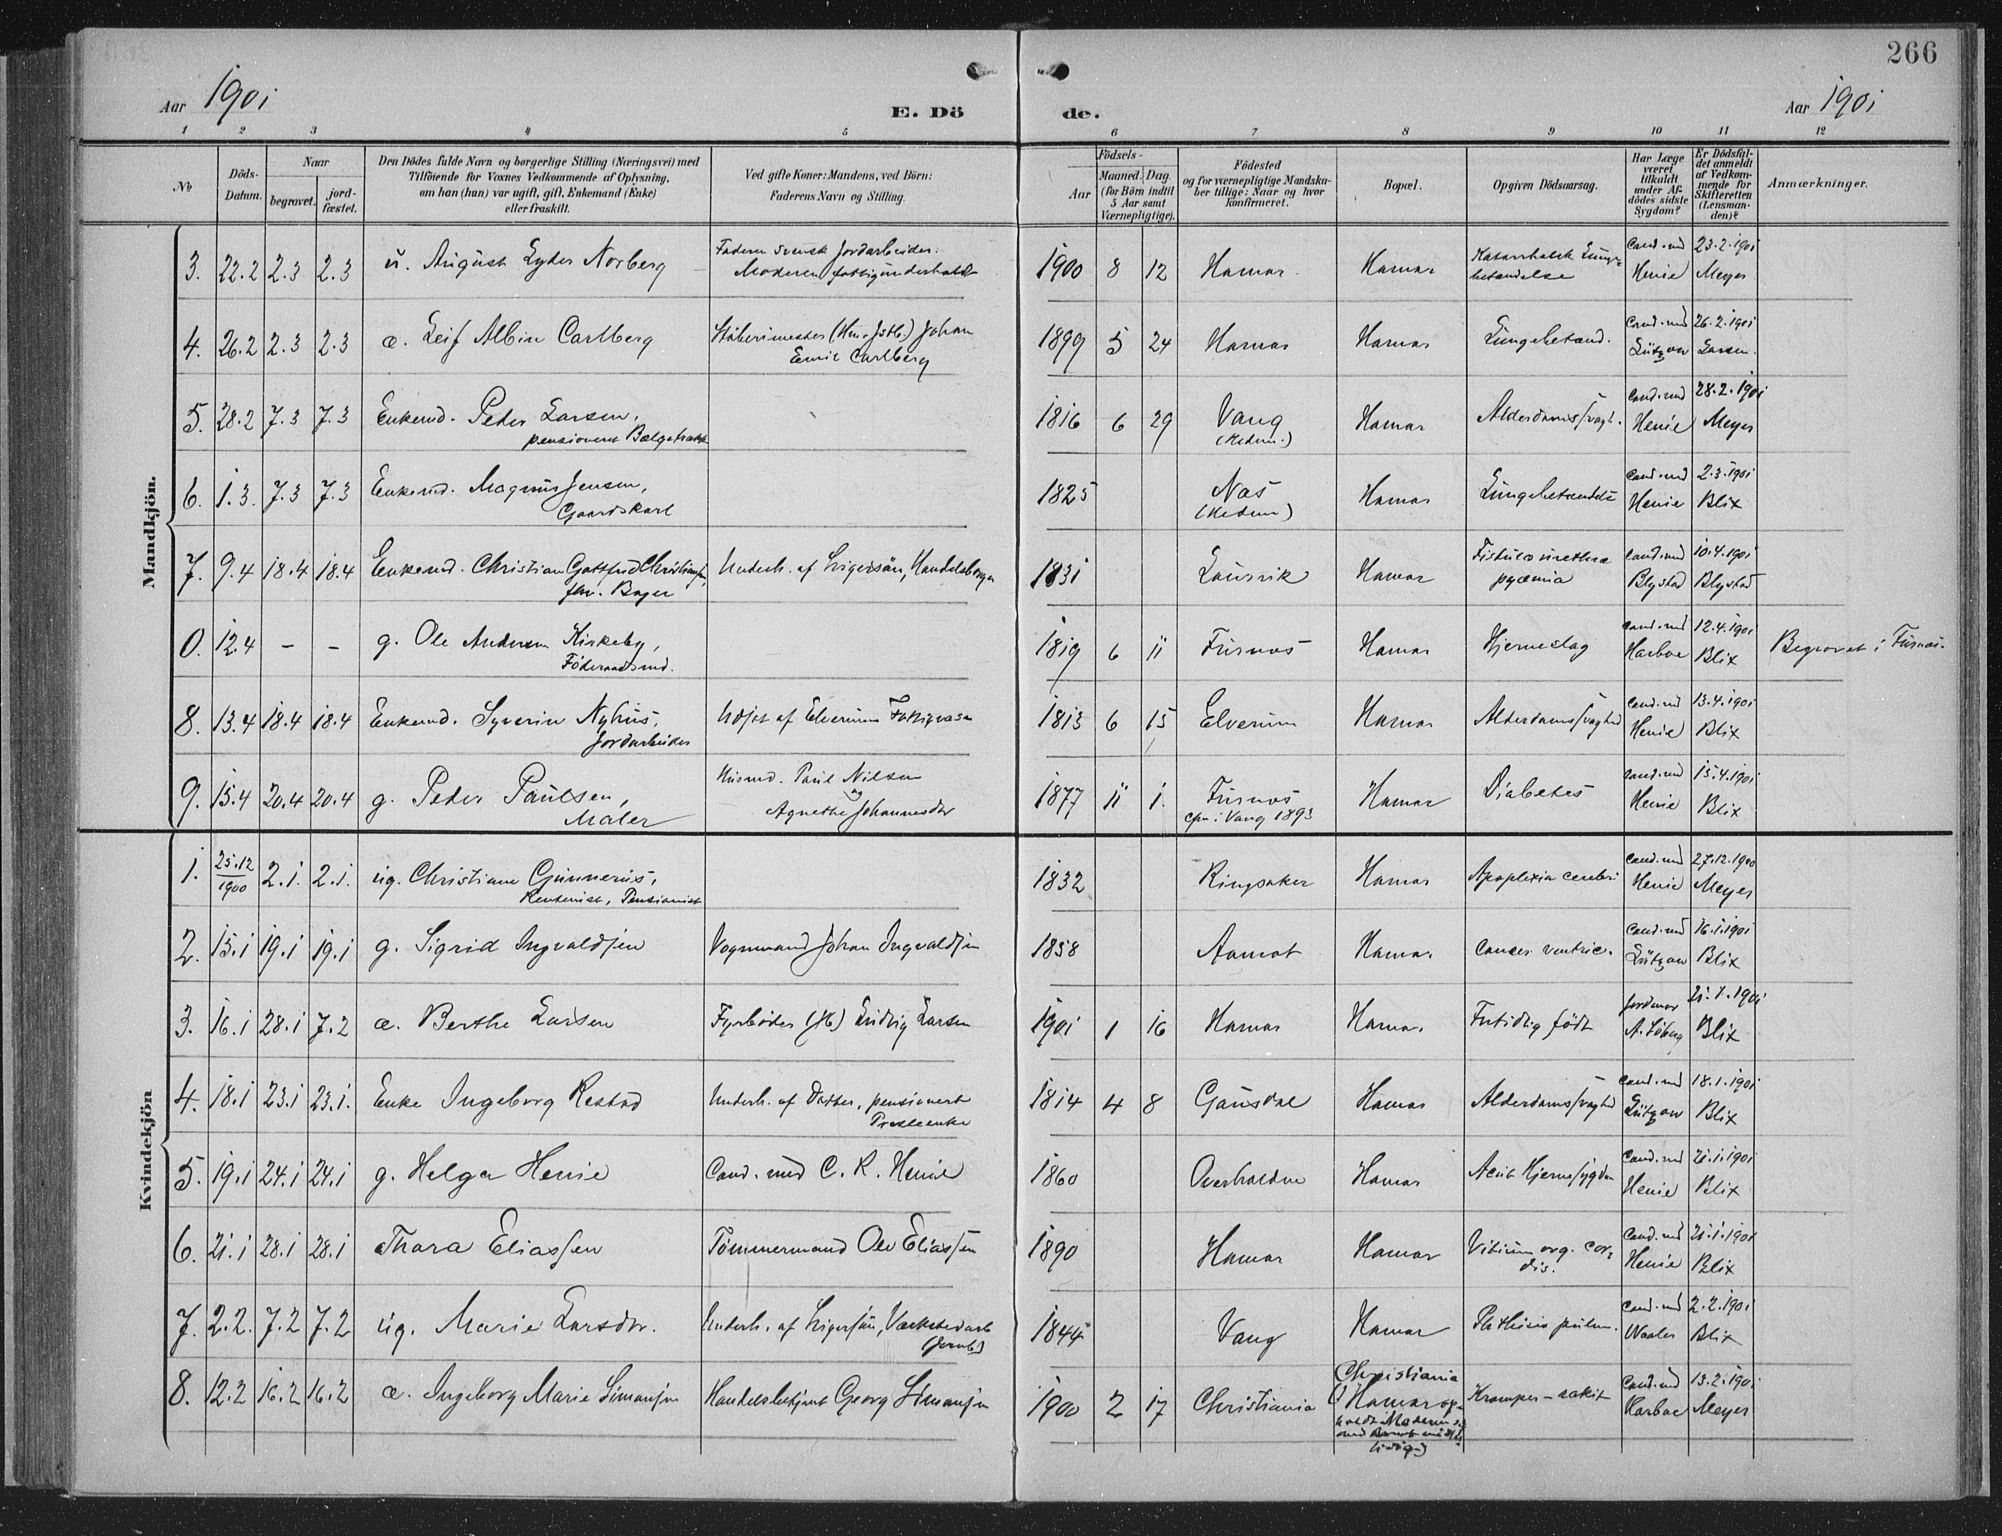 266
Aar 1901
E. Dö
de.
Aar 1901
1 2 3 4 5 6 7 8 9 10 11 12
No
Döds-
Datum.
Naar
begravet.
jord-
fæstet.
Den Dödes fulde Navn og borgerlige Stilling (Næringsvei) med
Tilföiende for Voxnes Vedkommende af Oplysning,
om han (hun) var ugift, gift, Enkemand (Enke)
eller fraskilt.
Ved gifte Koner: Mandens, ved Börn:
Faderens Navn og Stilling.
Födsels-
Aar
Maaned.
Dag.
(for Börn indtil
5 Aar samt
Værnepligtige).
Födested
og for værnepligtige Mandska-
ber tillige: Naar og hvor
konfirmeret.
Bopæl.
Opgiven Dödsaarsag.
Har Læge
været
tilkaldt
under Af-
dödes sidste
Sygdom?
Er Dödsfal-
det anmeldt
af Vedkom-
mende for
Skifteretten
(Lensman-
den)?
Anmærkninger.
Mandkjön.
3. 22.2 2.3 2.3 u. August Norberg Faderen svensk Jordarbeider. 1900 8 12 Hamar Hamar Katarrhalsk Lunge- Cand. med 23.2.1901
Moderen fattigunderholdt betændelse Henie Meyer
4. 26.2 2.3 2.3 æ. Leif Albin Carlberg Johan 1899 5 24 Hamar Hamar Lungebetænd. Cand. med 26.2.1901
Emil Carlberg Lützow Larsen.
5. 28.2 7.3 7.3 Enkemd. Peder Larsen, 1816 6 29 Vang Hamar Alderdomssvagh. Cand. med 28.2.1901
pensioneret (Hedem.) Henie Meyer
6. 1.3. 7.3 7.3 Enkemd. Magnus Jensen, 1825 Næs Hamar Lungebetændelse Cand. med 2.3.1901
Gaardskarl (Hedem) Henie Blix
7. 9.4 18.4 18.4 Enkemd. Christian Gottfred Christiansen, Underh. af Svigersön, Handelsborger 1831 Laurvik Hamar Fistula urethra Cand. med 10.4.1901
fhv. Bager pyæmia Blystad Blystad
0. 12.4 – – g. Ole Andersen Kirkeby, 1819 6 11 Furnæs Hamar Hjerneslag Cand. med 12.4.1901 Begravet i Furnæs.
Föderaadsmd. Harboe Blix
8. 13.4 18.4 18.4 Enkemd. Syverin Nyhus, Udsat af Elverums Fattigvæsen 1813 6 15 Elverum Hamar Alderdomssvaghed Cand. med 13.4.1901
Jordarbeider Henie Blix
9. 15.4 20.4 20.4 g. Peder Paulsen, Husmd. Paul Nilsen 1877 11 1. Furnæs Hamar Diabetes Cand. med 15.4.1901
Maler og Agnethe Johannesdtr cfm. i Vang 1893 Henie Blix
Kvindekjön
1. 25.12 1900 2.1. 2.1. ug. Christiane Gunnerus, 1832 Ringsaker Hamar Apoplexia cerebri Cand. med 27.12.1900
Rentenist, Pensionist Henie Meyer
2. 15.1 19.1 19.1 g. Sigrid Ingvaldsen Vognmand Johan Ingvaldsen 1858 Aamot Hamar Cancer ventric. Cand. med 16.1.1901
Lützow Blix
3. 16.1 28.1 7.2 æ. Berthe Larsen Fyrböder Ludvig Larsen 1901 1 16 Hamar Hamar Futidlig födt Jordmor 21.1.1901
A. Blix
4. 18.1 23.1 23.1. Enke Ingeborg Restad Underh. af Datter, pensioneret 1814 4 8 Gausdal Hamar Alderdomssvaghed Cand. med 18.1.1901
Presteenke Lützow Blix
5. 19.1 24.1 24.1 g. Helga Henie Cand. med C. R. Henie 1860 Overhalden Hamar Acut Hjernesygdom Cand. med 21.1.1901
Henie Blix
6. 21.1 28.1 28.1 Thora Eliassen Tömmermand Ole Eliassen 1890 Hamar Hamar Vitium org. cor- Cand. med 21.1.1901
dis. Henie Blix
7. 2.2. 7.2 7.2 ug. Marie Larsdtr. Underh. af Svigersön, Værkstedarb 1844 Vang Hamar Phthisis pulm. Cand. med 2.2.1901
Blix
8. 12.2 16.2 16.2 æ. Ingeborg Marie Simonsen Handelsbetjent Georg Simonsen 1900 2 17 Christiania Christiania Kramper – rakit Cand. med 13.2.1901
(I Hamar op- Harboe Meyer
holdt Moderen sig